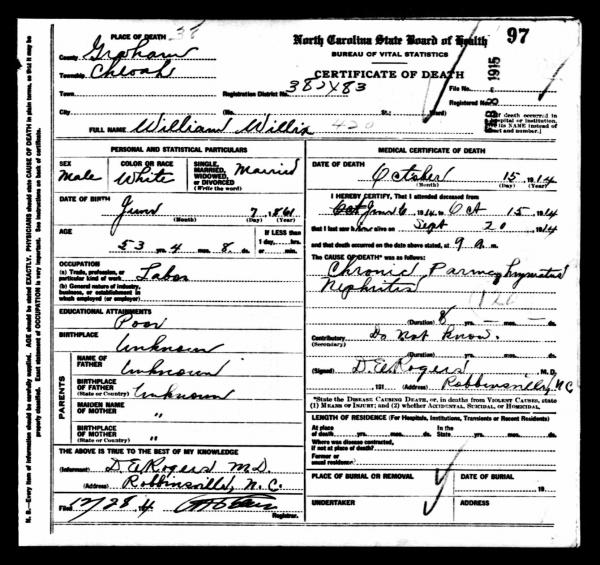 97
38
PLACE OF DEATH
North Carolina State Board of Health
BUREAU OF VITAL STATISTICS
CERTIFICATE OF DEATH
County Graham
Township Cheoah
Town
Registration District No. 382483
File No.
1915
Registered No.
City
(No. St.; Ward)
If death occurred in hospital or institution, its NAME instead of street and number.]
FULL NAME William Willix 420
PERSONAL AND STATISTICAL PARTICULARS
SEX
Male
COLOR OR RACE
White
SINGLE, MARRIED, WIDOWED, OR DIVORCED
(Write the word)
Married
DATE OF BIRTH
June 7, 1861
(Month) (Day) (Year)
AGE
53 yrs. 4 mos. 8 ds.
If LESS than
1 day, hrs.
or min.
OCCUPATION
(a) Trade, profession, or particular kind of work Labor
(b) General nature of industry, business, or establishment in which employed (or employer)
EDUCATIONAL ATTAINMENTS
Poor
BIRTHPLACE
Unknown
PARENTS
NAME OF FATHER
Unknown
BIRTHPLACE OF FATHER
(State or Country)
Unknown
MAIDEN NAME OF MOTHER
"
BIRTHPLACE OF MOTHER
(State or Country)
"
THE ABOVE IS TRUE TO THE BEST OF MY KNOWLEDGE
(Informant) D. E. Rogers M.D.
(Address) Robbinsville, N. C.
Filed 12/28 14
Registrar.
MEDICAL CERTIFICATE OF DEATH
DATE OF DEATH
October 15, 1914
(Month) (Day) (Year)
I HEREBY CERTIFY, That I attended deceased from
Oct June 6, 1914, to Oct 15, 1914
that I last saw h alive on Sept 20, 1914
and that death occurred on the date above stated, at 9 a m.
The CAUSE OF DEATH* was as follows:
Chronic
Nephritis
120
(Duration) 8 yrs. — mos. — ds.
Contributory Do not know.
(Secondary)
(Duration) yrs. mos. ds.
(Signed) D. E. Rogers, M. D.
, 191 (Address) Robbinsville, N.C.
*State the DISEASE CAUSING DEATH, or, in deaths from VIOLENT CAUSES, state (1) MEANS OF INJURY; and (2) whether ACCIDENTAL, SUICIDAL, or HOMICIDAL.
LENGTH OF RESIDENCE (For Hospitals, Institutions, Transients or Recent Residents)
At place of death yrs. mos. ds.
In the State yrs. mos. ds.
Where was disease contracted, if not at place of death?
Former or usual residence
PLACE OF BURIAL OR REMOVAL
DATE OF BURIAL
19
UNDERTAKER
ADDRESS
N. B.—Every item of information should be carefully supplied. AGE should be stated EXACTLY. PHYSICIANS should state CAUSE OF DEATH in plain terms, so that it may be properly classified. Exact statement of OCCUPATION is very important. See instructions on back of certificate.